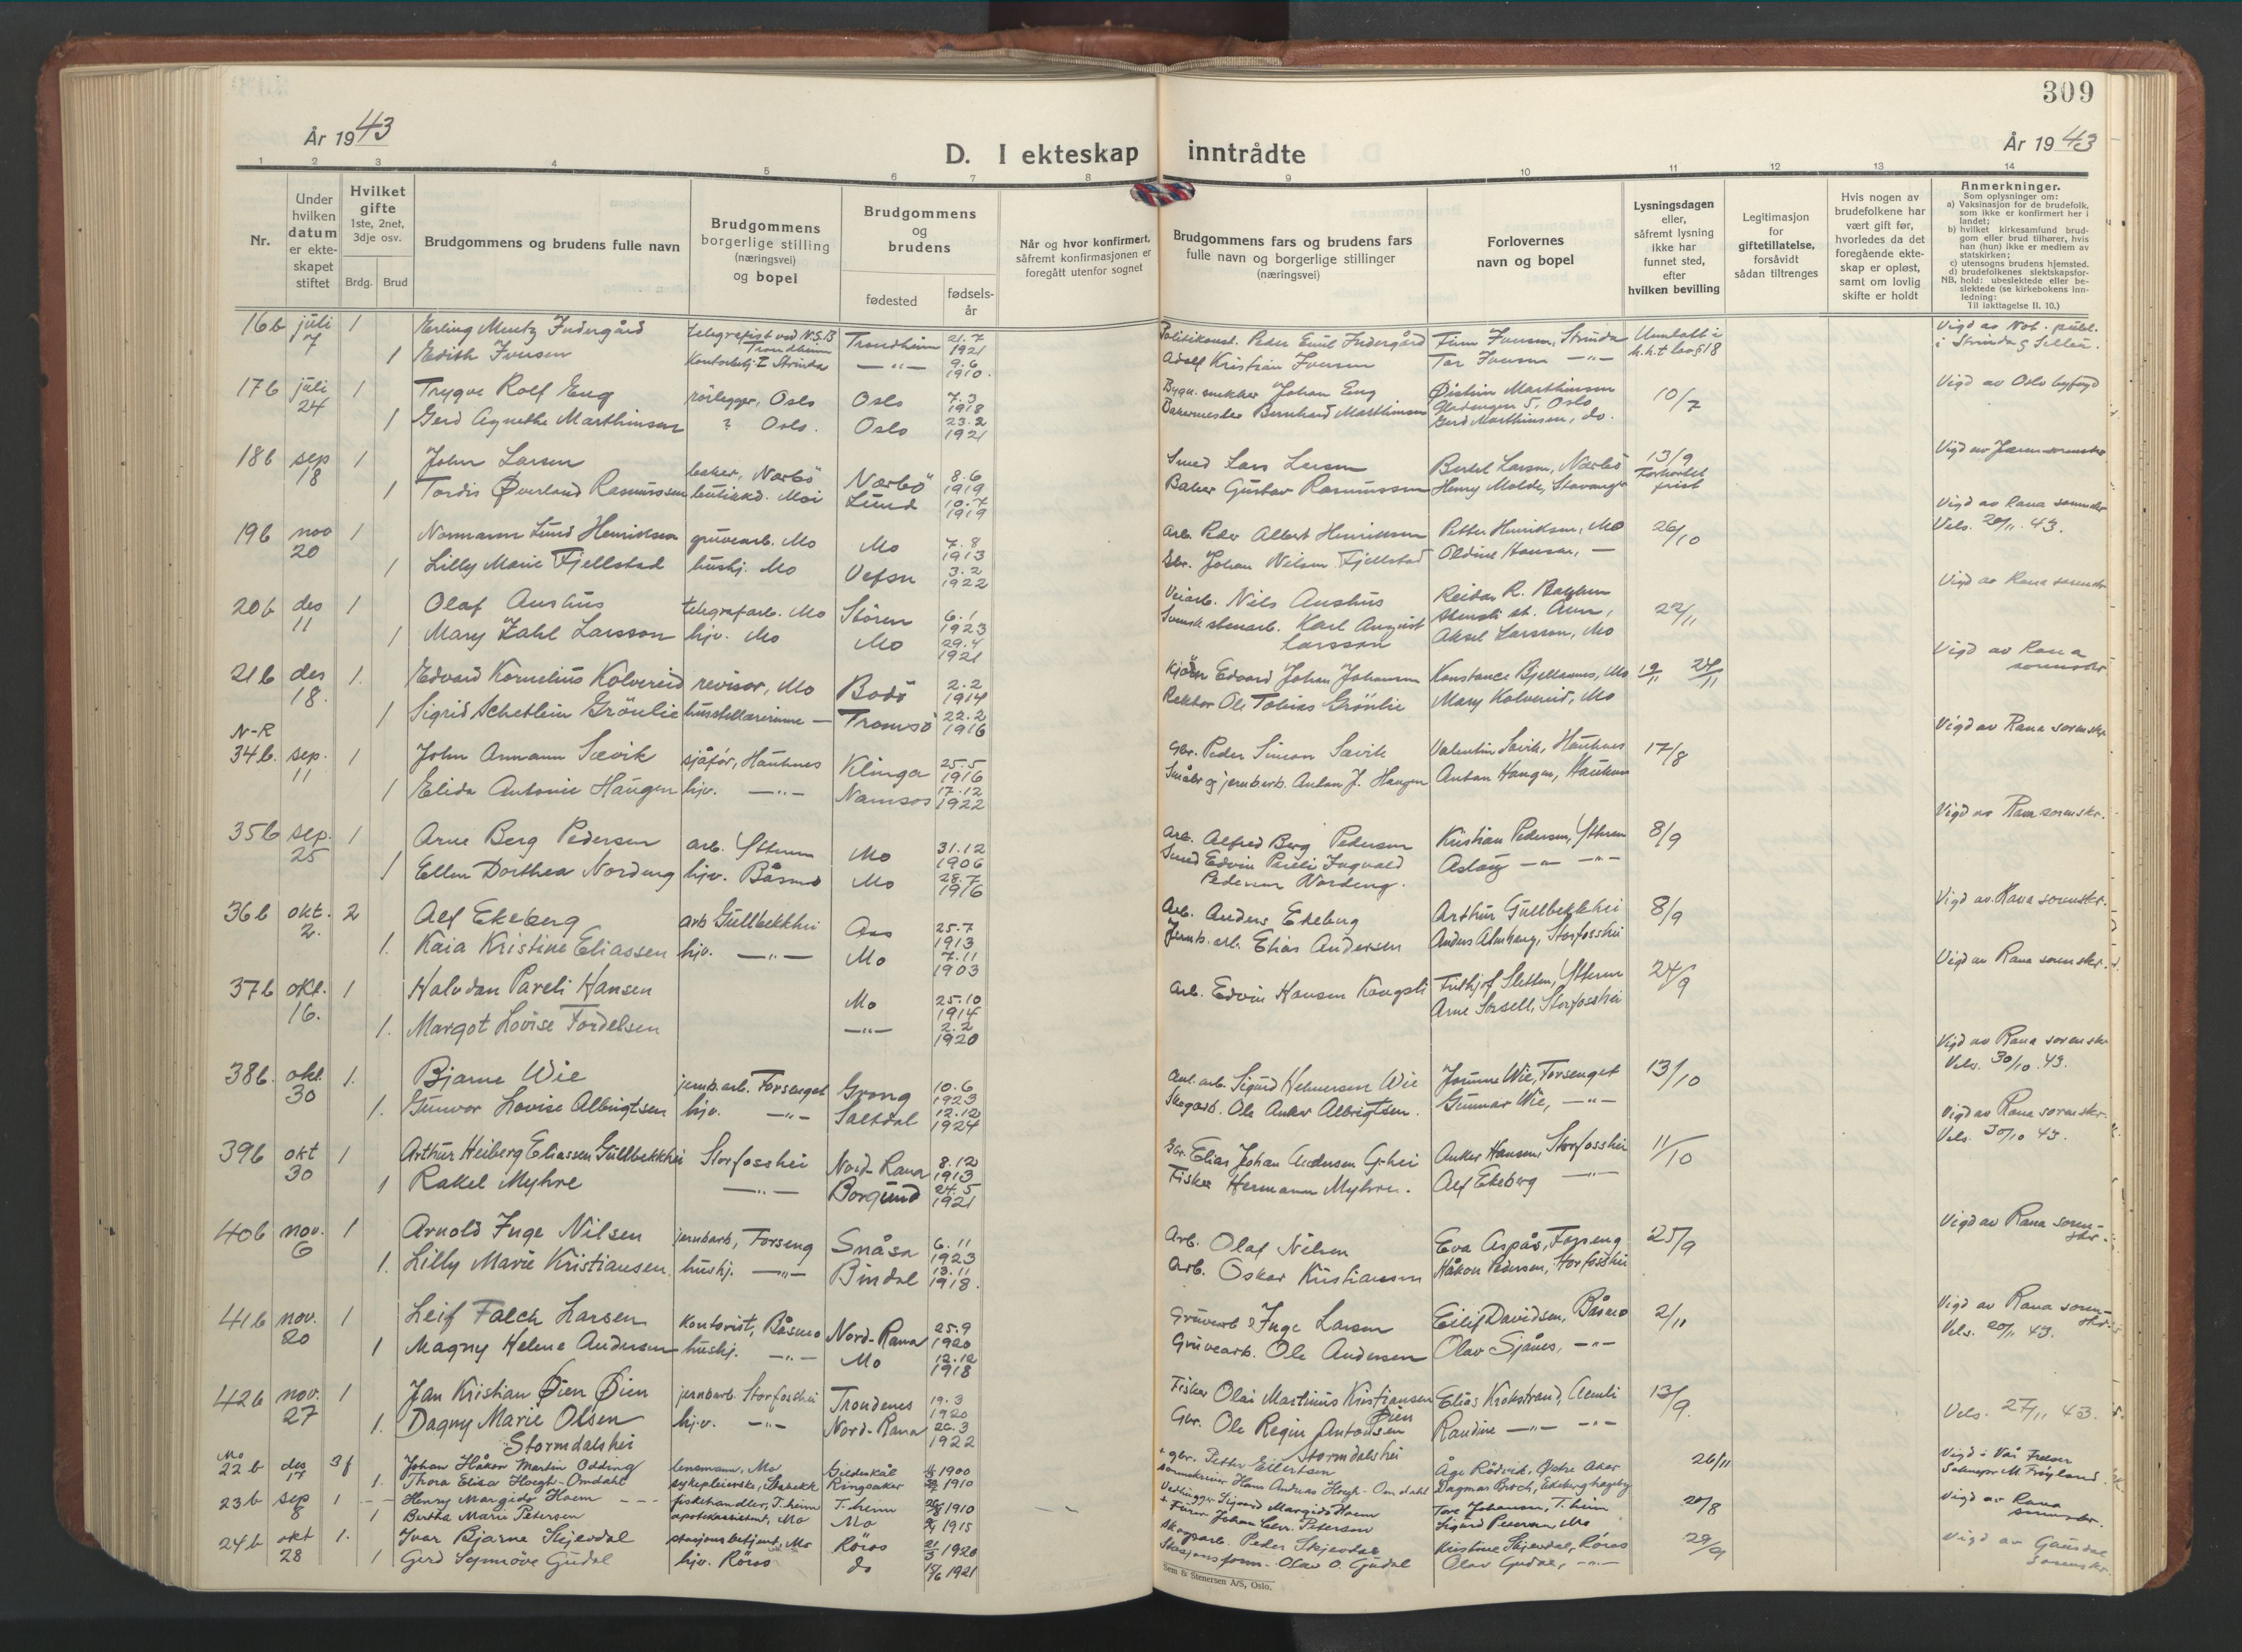 309
År 1943
År 1943
D. I ekteskap inntrådte
1 2 3 4 5 6 7 8 9 10 11 12 13 14
Nr.
Under hvilken datum er ekte-skapet stiftet
Hvilket gifte
1ste, 2net, 3dje osv.
Brdg. Brud
Brudgommens og brudens fulle navn
Brudgommens borgerlige stilling (næringsvei) og bopel
Brudgommens og brudens
fødested
fødsels-år
Når og hvor konfirmert, såfremt konfirmasjonen er foregått utenfor sognet
Brudgommens fars og brudens fars fulle navn og borgerlige stillinger (næringsvei)
Forlovernes navn og bopel
Lysningsdagen eller, såfremt lysning ikke har funnet sted, efter hvilken bevilling
Legitimasjon for giftetillatelse, forsåvidt sådan tiltrenges
Hvis nogen av brudefolkene har vært gift før, hvorledes da det foregående ekte-skap er opløst, samt om lovlig skifte er holdt
Anmerkninger.
Som oplysninger om:
a) Vaksinasjon for de brudefolk, som ikke er konfirmert her i landet;
b) hvilket kirkesamfund brud-gom eller brud tilhører, hvis han (hun) ikke er medlem av statskirken;
c) utensogns brudens hjemsted.
d) brudefolkenes slektskapsfor-hold: ubeslektede eller be-slektede (se kirkebokens Inn-ledning: Til iakttagelse II. 10.)
NB.
16b juli 7 1 Erling Mentz Indergård telegrafist ved N.S.B Trondheim Trondheim 21.7 1921 Peder Emil Indergård Finn Iversen, Strinda Unnlatt i Vigd av Not. publ.
1 Edith Iversen Strinda —"— 9.6 1910. Adolf Kristian Iversen Tor Iversen —"— i Strinda
17b juli 24 1 Trygve Rolf Eng rörlegger, Oslo Oslo 7.3 1918 Bygn. snekker Johan Eng Øistein Marthinsen Oslo 10/7 Vigd av Oslo byfogd
1 Gerd Agnethe Marthinsen ? Oslo. Oslo 23.2 1921 Bakermester Bernhard Marthinsen Gerd Marthinsen, do.
18b sep 18 1 John Larsen baker, Nærbö Nærbö 8.6 1919 Smed Lars Larsen Bertel Larsen, Nærbö 13/9 Forkortet frist Vigd av Jæren sorenskr
1 Tordis Øverland Rasmussen butikkd. Moi Lund 10.7 1919 Baker Gustav Rasmussen Henry Molde, Stavanger
19b nov 20 1 Normann Lund Henriksen gruvearb. Mo Mo 7.8 1913 Arb. Peder Albert Henriksen Petter Henriksen, Mo 26/10 Vigd av Rana sorenskr Vels. 20/11. 43.
1 Lilly Marie Fjellstad hushj. Mo Vefsn 3.2 1922 Gbr. Johan Nilsen Fjellstad Oldine Hansen, —
20b des 11 1 Olaf Aushus telegrafarb. Mo Stören 6.1 1923 Veiarb. Nils Aushus Reidar R. 22/11 Vigd av Rana sorenskr
1 Mary Zahl Larsson hjv. Mo Mo 29.4 1921 Svensk stenarb. Karl August Larsson Aksel Larsson, Mo
21b des 18. 1. Edvard Kornelius Kolvereid revisor, Mo Bodö 2.2 1914 Edvard Johan Johansen Konstance Bjellånes, Mo 24/11 Vigd av Rana sorenskr
1 Sigrid Schetlein Grönlie husstellærerinne — Tromsö 22.2 1916 Rektor Ole Tobias Grönlie Mary Kolvereid, Mo
N-R
34b. sep. 11 1 John Armann Sævik sjåför, Hauknes Klinga 25.5 1916 Gbr. Peder Simon Sævik Valentin Sævik, Hauknes 17/8 Vigd av Rana sorenskr.
1 Elida Antonie Haugen hjv. —"— Namsos 17.12 1922 Småbr og jernb.arb. Anton J. Haugen Anton Haugen, Hauknes
35b sep. 25 1 Arne Berg Pedersen arb. Ytteren Mo 31.12 1906 Arb. Alfred Berg Pedersen Kristian Pedersen, Ytteren 8/9 Vigd av Rana sorenskr.
1 Ellen Dorthea Nordeng hjv. Båsmo Mo 28.7 1916 Smed Edvin Pareli Ingvald Pedersen Nordeng. Aslaug —"— —"—
36b okt. 2. 2 Alf Ekeberg arb Gullbekkhei Aas 25.7 1913 Arb. Anders Ekeberg Arthur Gullbekkhei 8/9 Vigd av Rana sorenskr.
1. Kaia Kristine Eliassen hjv. —"— Mo 7.11 1903 Jernb. arb. Elias Andersen Anders Almhaug, Storfosshei
37b okt. 16. 1 Halvdan Pareli Hansen Mo 25.10 1914 Arb. Edvin Hansen Kongsli Fridhjof Sletten, Ytteren 24/9 Vigd av Rana sorenskr.
1. Margot Lovise Tordelsen —"— 2.2 1920 Arne Sorsell, Storfosshei
38b. okt. 30 1. Bjarne Wie jernb.arb. Forsenget Grong 10.6 1923 Anl. arb. Sigurd Helmersen Wie Jorunn Wie, Forsenget 13/10 Vigd av Rana sorenskr Vels. 30/10. 43.
1. Gunvor Lovise Albrigtsen hjv. —"— Saltdal 12.12 1924 Skogarb. Ole Anker Albrigtsen. Gunnar Wie, —"—
39b okt 30 1 Arthur Heiberg Eliassen Gullbekkhei Storfosshei Nord-Rana 8.12 1913 Gbr. Elias Johan Andersen G-hei Anker Hansen, Storfosshei 11/10 Vigd av Rana sorenskr. Vels. 30/10 43.
1 Rakel Myhre —"— Borgund 24.5 1921 Fisker Hermann Myhre. Alf Ekeberg —"—
40b nov. 6 1 Arnold Inge Nilsen jernbarb, Forseng Snåsa 6.11 1923 Arb. Olaf Nilsen Eva Aspås, Forseng 25/9 Vigd av Rana soren-skr.
1. Lilly Marie Kristiansen hushj. —"— Bindal 13.11 1918. Arb. Oskar Kristiansen Håkon Pedersen, Storfosshei
41b nov. 20 1 Leif Falch Larsen Kontorist, Båsmo Nord-Rana 25.9 1920 Gruvearb Inge Larsen Eilif Davidsen, Båsmo 2/11 Vigd av Rana soren-skr. Vels. 20/11 43.
1 Magny Helene Andersen hushj. —"— Mo 12.12 1918 Gruvearb. Ole Andersen Olav Sjånes, —"—
42b nov. 27 1 Jan Kristian Øien Øien jernbarb. Storfosshei Trondenes 19.3 1920 Fisker Olai Martinus Kristjansen Øien Elias Krokstrand, 13/9. Vels. 27/11 43.
1. Dagny Marie Olsen Stormdalshei hjv. —"— Nord-Rana 20.3 1922 Gbr. Ole Regin Antonsen Stormdalshei Randine —"— —"—
Mo
22b des 17 3f Johan Håkon Martin Odding lensmann, Mo Gildeskål 1900 gbr. Petter Ellertsen Åge Rödvik, Østre Aker 26/11 Vigd i Vår Frelser
1. Thora Elisa Hoegh-Omdahl sykepleierske, Stabekk Ringsaker 1910 Sorenskriver Hans Andreas Hoegh-Omdahl Dagmar Broch, Ekeberg hageby
23b sep 8 1 Henry Margido Hoem fiskehandler, T.heim T.heim 1910 Sigvard Margido Hoem Tor Johansen, T.heim 20/8 Vigd av Rana sorenskr.
1 Bertha Marie Petersen apotekassistent, Mo Mo 1915 Johan Chr. Petersen Sigurd Petersen Mo
24b okt 28 1. Ivar Bjarne Skjevdal stasjonsbetjent, Mo Röros 1920 Skogsarb. Peder Skjevdal Kristine Skjevdal, Röros 29/9 Vigd av Gauldal sorenskr.
1 Gerd Synnöve Gudal hjv. Röros do 1921 Stasjonsform. Olav O. Gudal Olav Gudal, —"—
Sem & Stenersen A/S, Oslo.